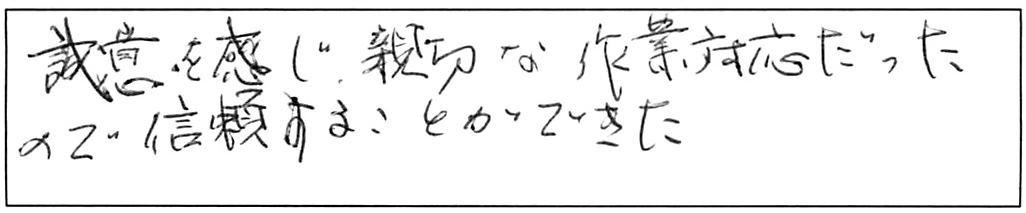 誠意を感じ、親切な作業対応だった
ので信頼することができた